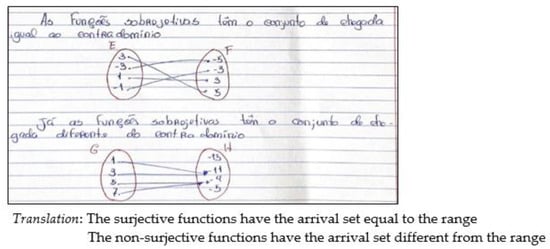 As Funções sobrejetivas têm o conjunto de chegada
igual ao contra domínio
E F
3 -5
-3 -3
1 3
-1 5
Já as funções sobrejetivas têm o conjunto de che-
gada diferente do contra domínio
G H
1 -13
3 -11
5
7 -5
Translation: The surjective functions have the arrival set equal to the range
The non-surjective functions have the arrival set different from the range